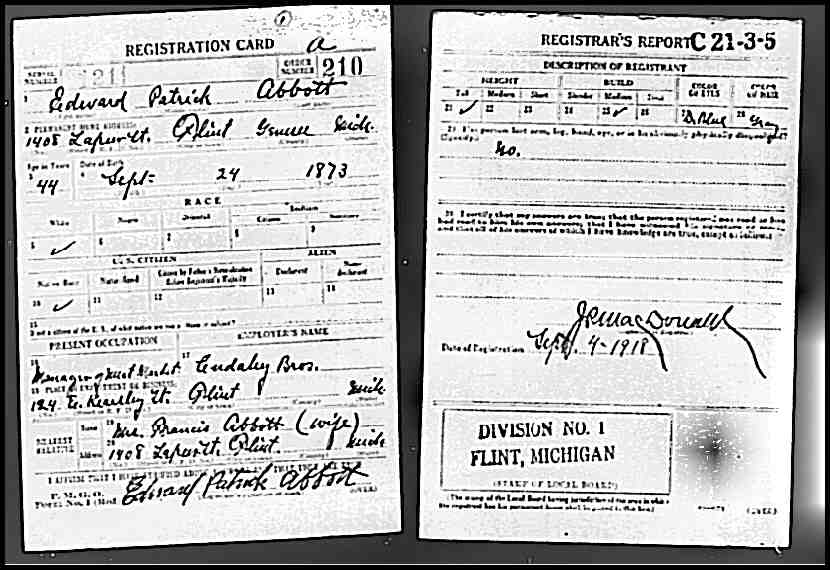 REGISTRATION CARD
A
SERIAL NUMBER 1211 ORDER NUMBER 210
1 Edward Patrick Abbott
2 PERMANENT HOME ADDRESS:
1408 Lapeer St. Flint Genesee Mich.
Age in Years Date of Birth
3 44 4 Sept. 24 1873
RACE
White Negro Oriental Indian
Citizen Noncitizen
5 ✓ 6 7 8 9
U. S. CITIZEN ALIEN
Native Born Naturalized Citizen by Father's Naturalization Before Registrant's Majority Declarant Non-declarant
10 ✓ 11 12 13 14
15
If not a citizen of the U. S., of what nation are you a citizen or subject?
PRESENT OCCUPATION EMPLOYER'S NAME
16 Managing Meat Market 17 Cudahy Bros.
18 PLACE OF EMPLOYMENT OR BUSINESS:
124 E. Kearsley St. Flint Mich
NEAREST RELATIVE
Name 19 Mrs. Francis Abbott (wife)
Address 20 1408 Lapeer St. Flint. Mich
I AFFIRM THAT I HAVE VERIFIED ABOVE
P. M. G. O.
Form No. 1 (Red) Edward Patrick Abbott (OVER)
REGISTRAR'S REPORT C 21-3-5
DESCRIPTION OF REGISTRANT
HEIGHT BUILD COLOR OF EYES COLOR OF HAIR
Tall Medium Short Slender Medium Stout
21 ✓ 22 23 24 25 ✓ 26 27 D Blue 28 Gray
29 Has person lost arm, leg, hand, eye, or is he obviously physically disqualified?
(Specify.)
No.
30 I certify that my answers are true; that the person registered has read or has
had read to him his own answers; that I have witnessed his signature or mark,
and that all of his answers of which I have knowledge are true, except as follows:
J.P. MacDonald
Date of Registration Sept. 4-1918
DIVISION NO. 1
FLINT, MICHIGAN
(STAMP OF LOCAL BOARD)
(The stamp of the Local Board having jurisdiction of the area in which
the registrant has his permanent home shall be placed in this box.)
(OVER)